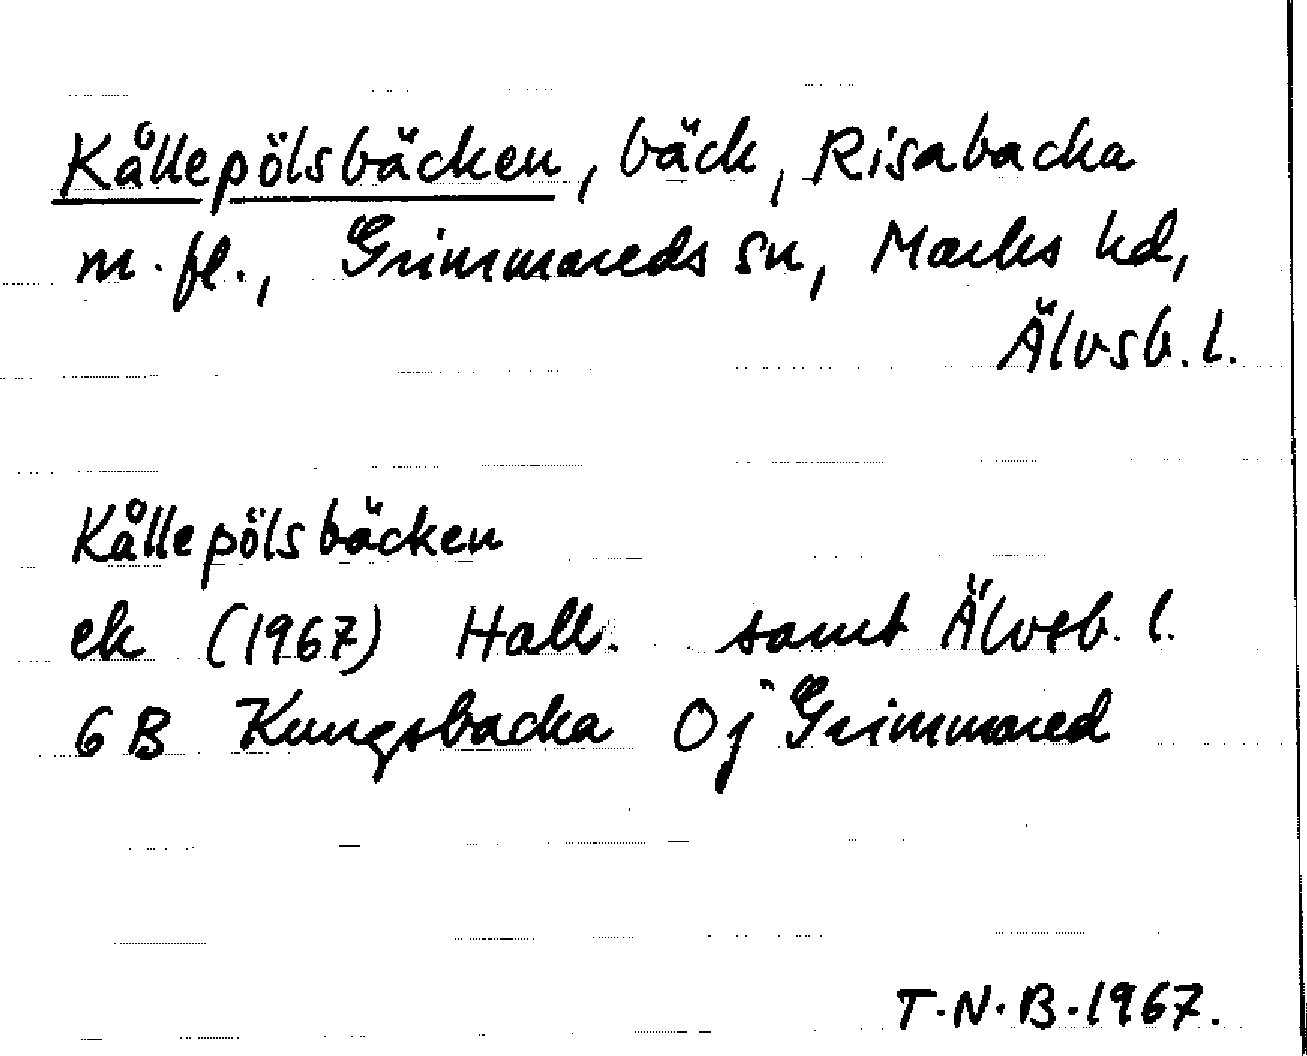 Kållepölsbäcken, bäck, Risabacka
m.fl., Grimmareds sn, Marks hd,
Älvsb. l.
Kållepölsbäcken
ek (1967) Hall. samt Älvsb. l.
6 B Kungsbacka 0j Grimmared
T.N.B.1967.